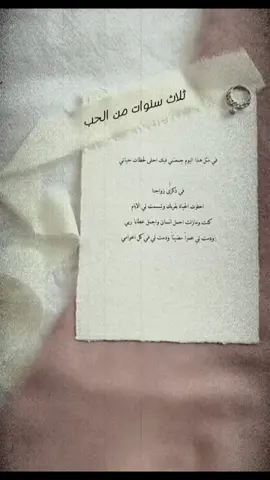 ثلاث سنوات من الحب
في مثل هذا اليوم جمعتني فيك احلى لحظات حياتي
في ذكرى زواجنا
احلوت الحياة بقربك وتبسمت لي الايام
كنت ومازلت اجمل انسان واجمل عطايا ربي
ودمت لي عمرا مضيئا ودمت لي في كل اعوامي